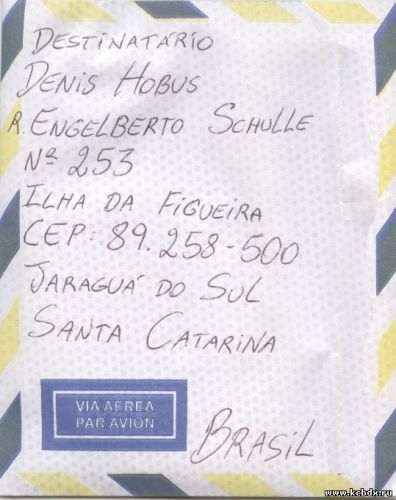 DESTINATÁRIO
DENIS HOBUS
R. ENGELBERTO SCHULLE
Nº 253
ILHA DA FIGUEIRA
CEP: 89.258-500
JARAGUÁ DO SUL
SANTA CATARINA
VIA AEREA
PAR AVION
BRASIL
www.kcbdx.ru